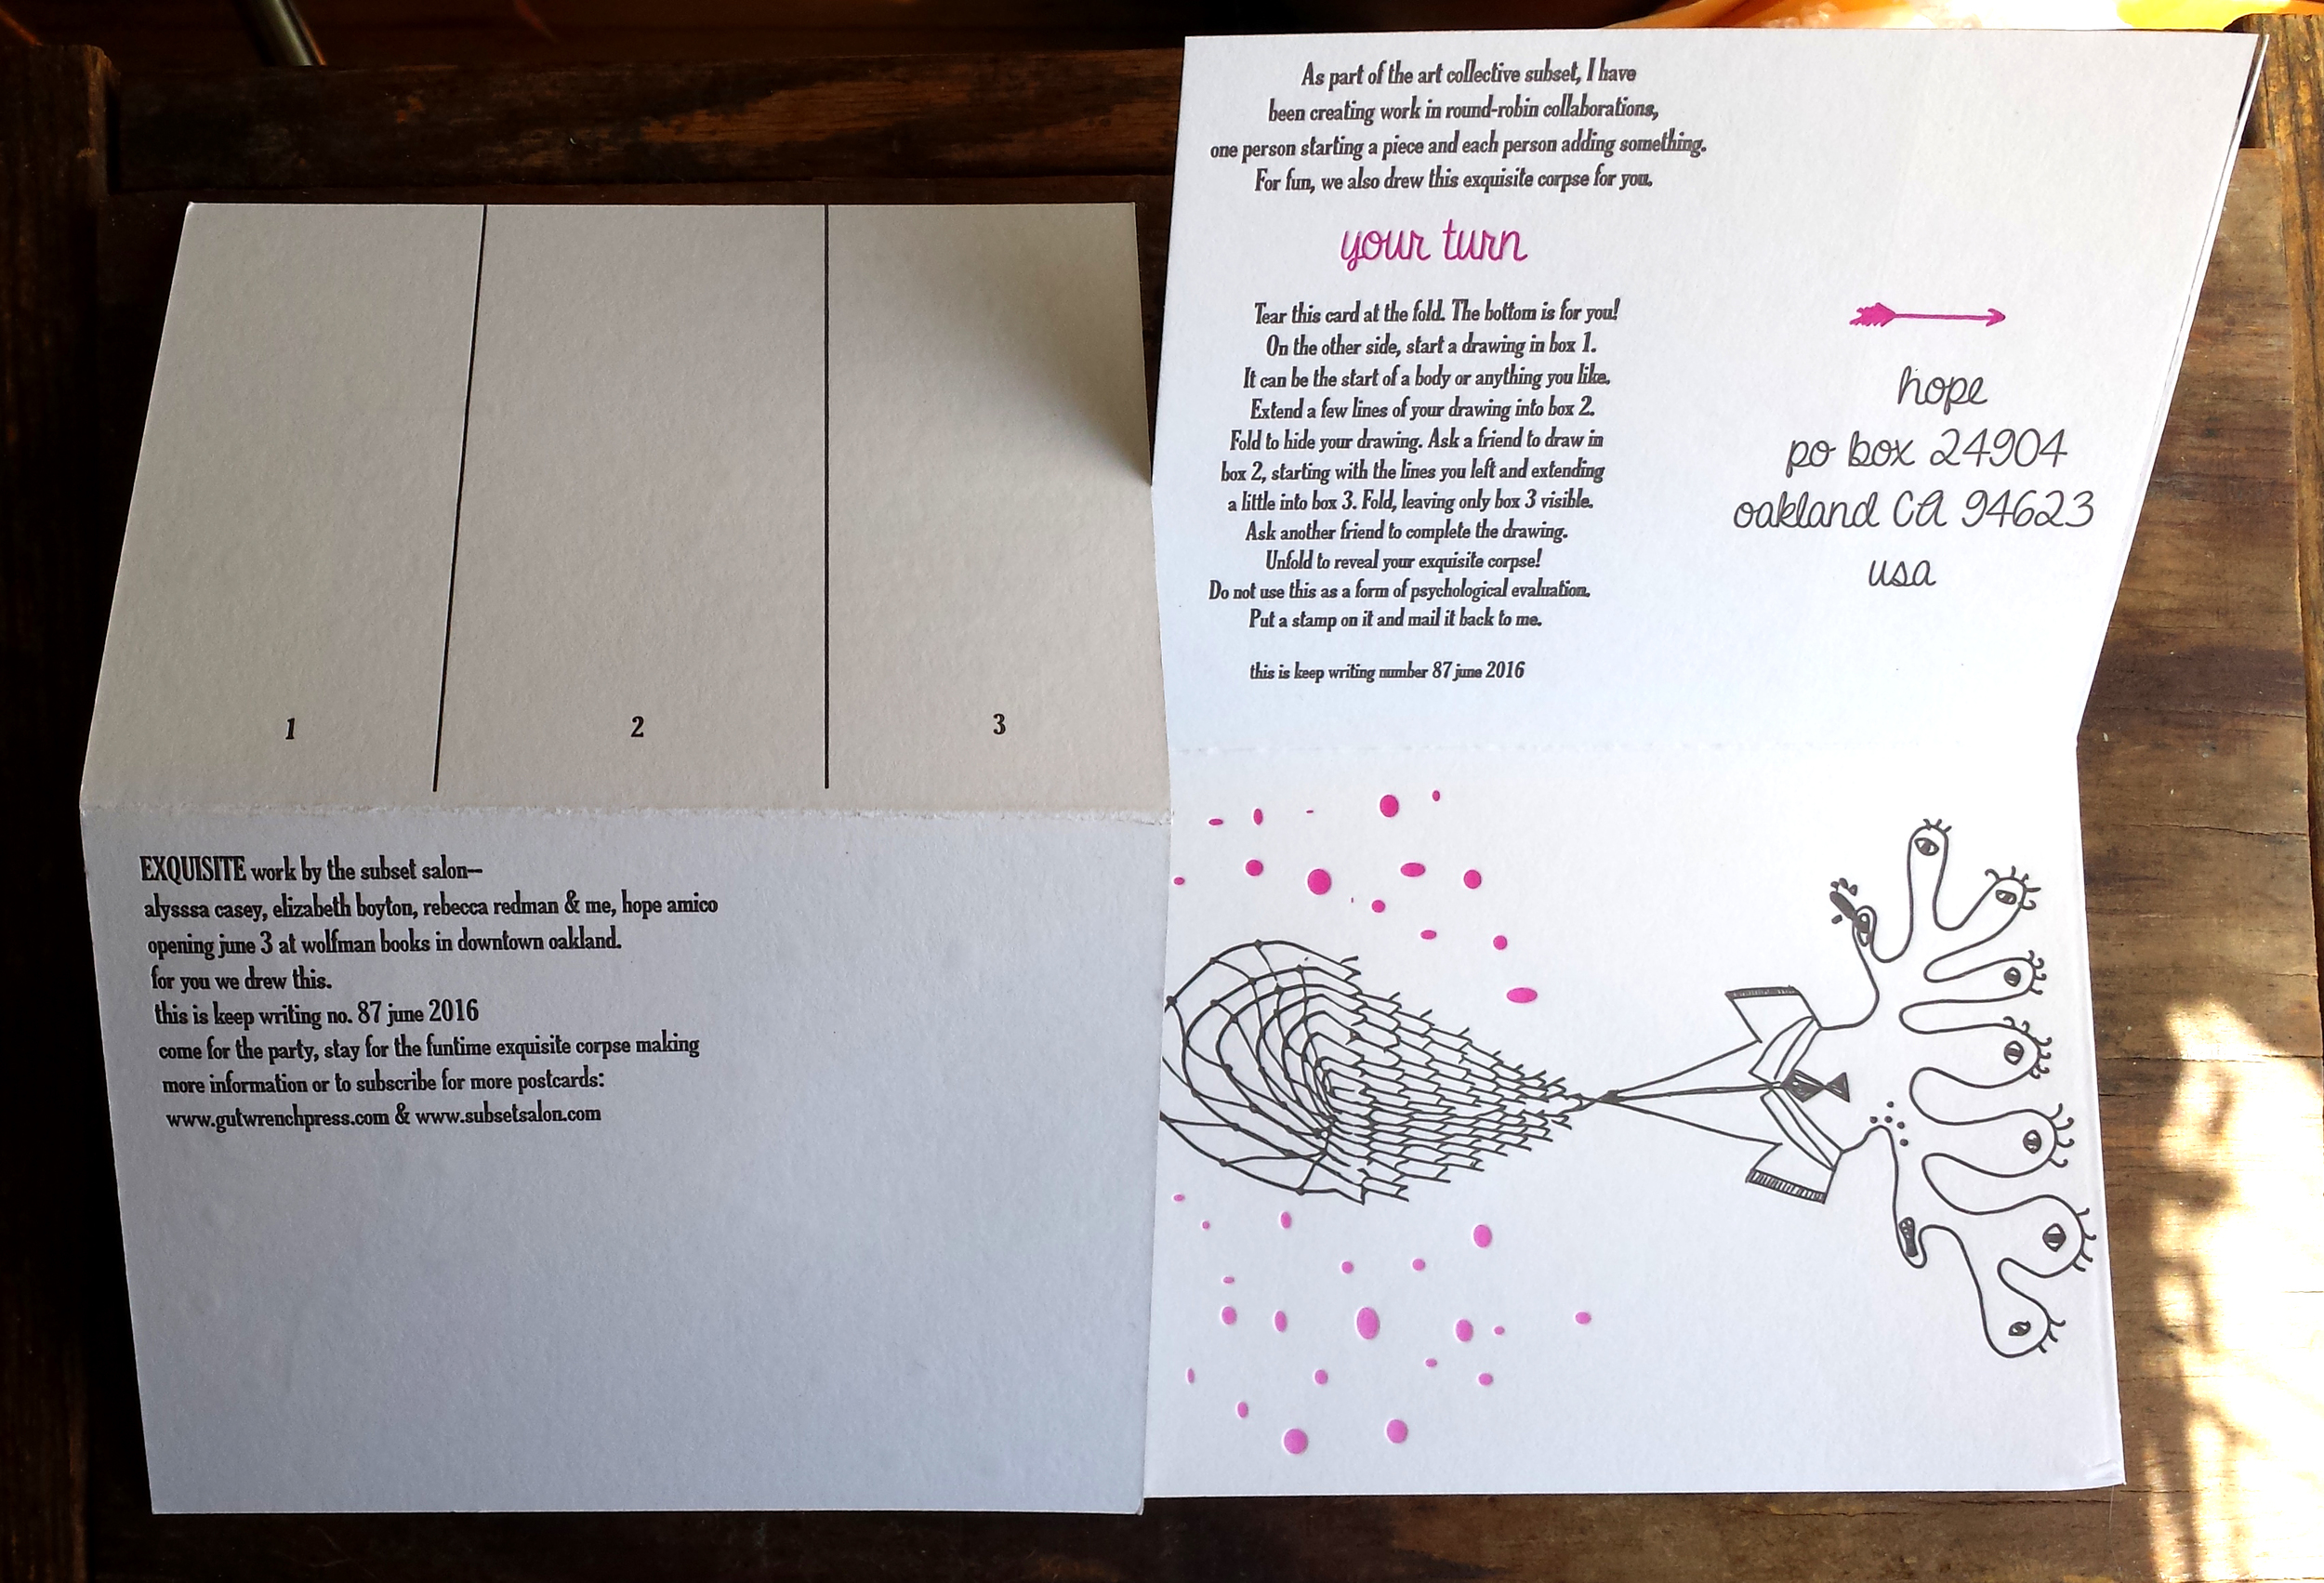 1
2
3
EXQUISITE work by the subset salon—
alysssa casey, elizabeth boyton, rebecca redman & me, hope amico
opening june 3 at wolfman books in downtown oakland.
for you we drew this.
this is keep writing no. 87 june 2016
come for the party, stay for the funtime exquisite corpse making
more information or to subscribe for more postcards:
www.gutwrenchpress.com & www.subsetsalon.com
As part of the art collective subset, I have
been creating work in round-robin collaborations,
one person starting a piece and each person adding something.
For fun, we also drew this exquisite corpse for you.
your turn
Tear this card at the fold. The bottom is for you!
On the other side, start a drawing in box 1.
It can be the start of a body or anything you like.
Extend a few lines of your drawing into box 2.
Fold to hide your drawing. Ask a friend to draw in
box 2, starting with the lines you left and extending
a little into box 3. Fold, leaving only box 3 visible.
Ask another friend to complete the drawing.
Unfold to reveal your exquisite corpse!
Do not use this as a form of psychological evaluation.
Put a stamp on it and mail it back to me.
this is keep writing number 87 june 2016
hope
po box 24904
oakland CA 94623
usa